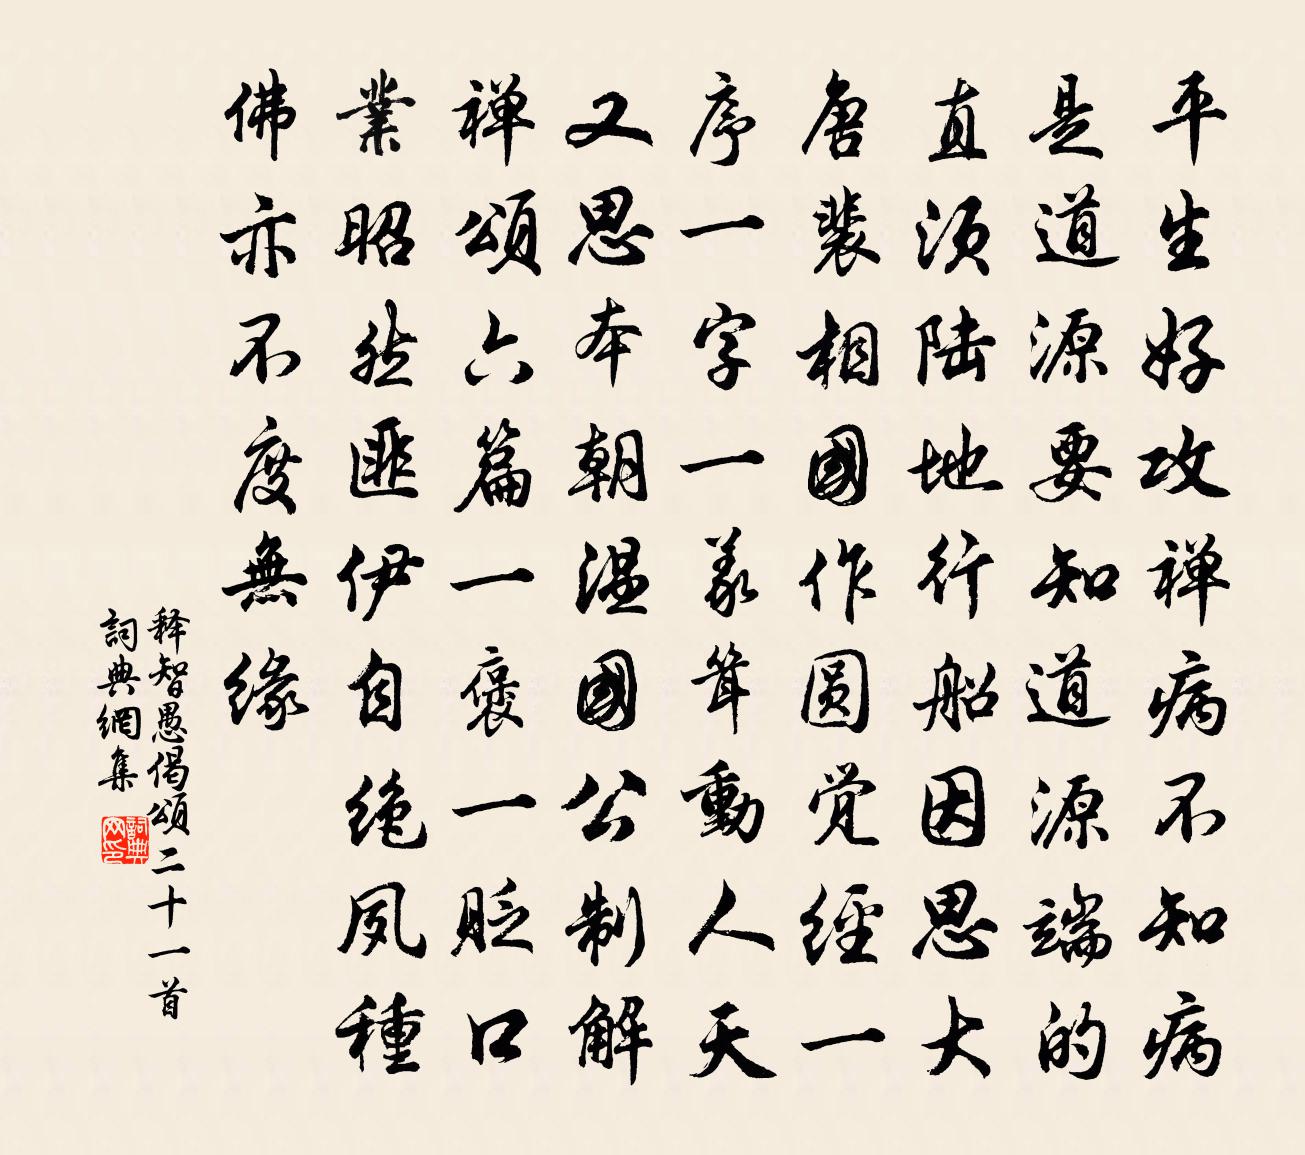 平生好攻禅病不知病
是道源要知道源端的
直须陆地行船因思大
唐裴相國作圆觉經一
序一字一義耸動人天
又思本朝温國公制解
禅頌六篇一褒一贬口
業昭然匪伊自绝夙種
佛亦不度無缘
释智愚偈頌二十一首
詞典網集
詞典
网印